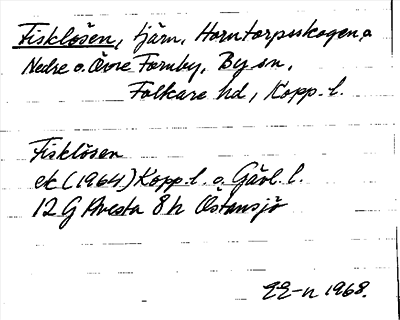 Fisklösen, tjärn, Horntorpsskogen, o
Nedre o. Övre Fornby, By sn,
Folkare hd, Kopp. l.
Fisklösen
ek (1964) Kopp. l. o. Gävl. l.
12 G Avesta 8 h Östansjö
1968.